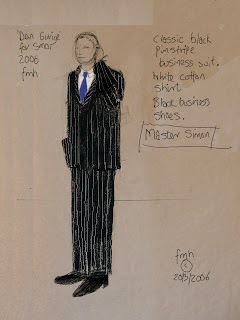 for Smar'
2006
fmh
Classic black
Pinstripe
business suit.
White cotton
shirt
Black business
shoes.
Master Simon
fmh
©
20/3/2006